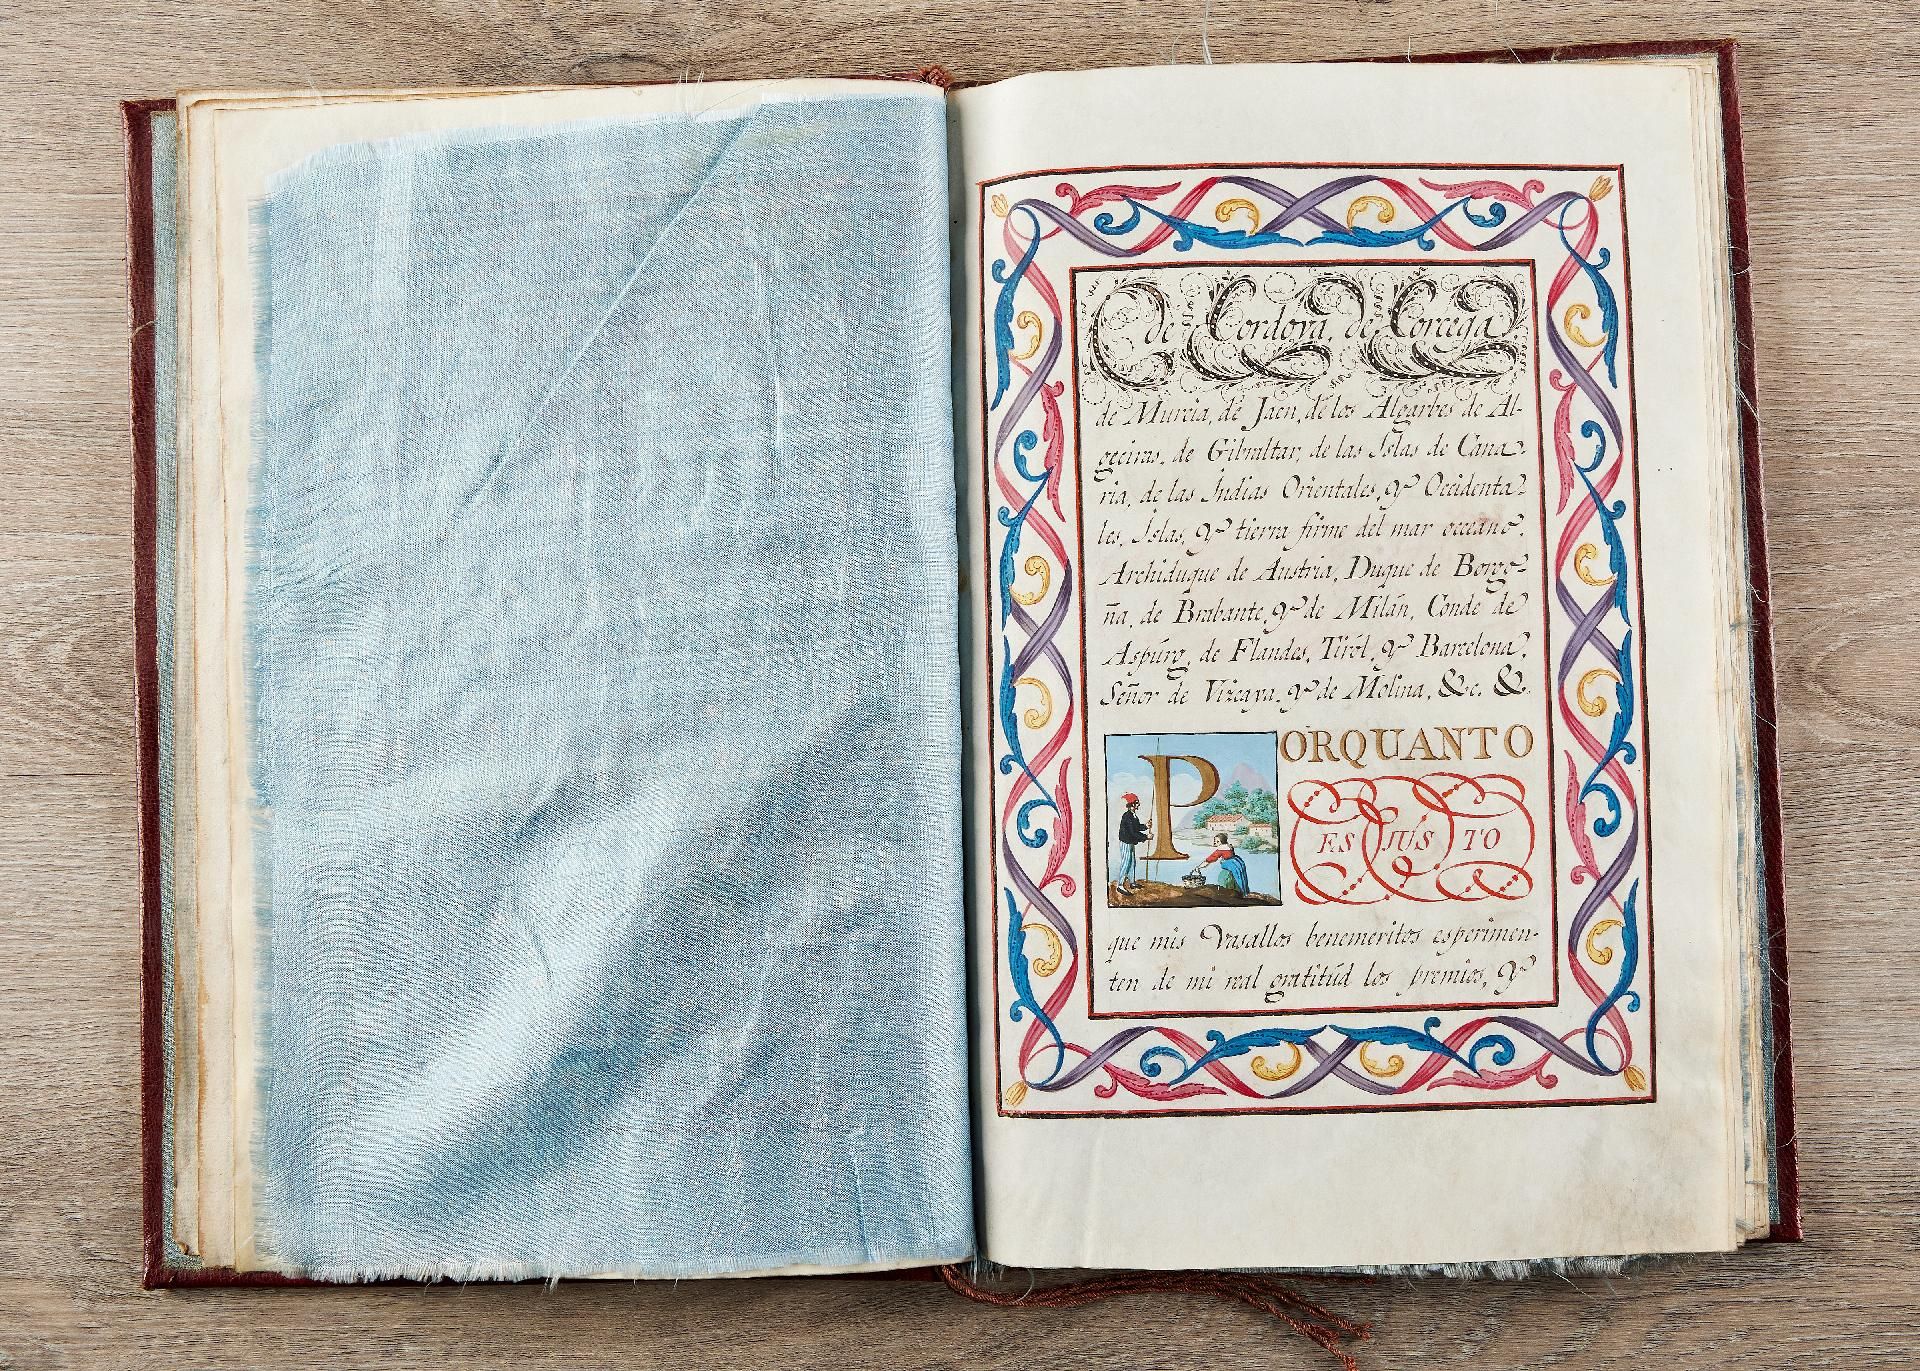 de Cordova, de Corcega
de Murcia, de Jaen, de los Algarbes de Al-
geciras, de Gibraltar, de las Islas de Cana-
ria, de las Indias Orientales, y Occidenta-
les, Islas, y tierra firme del mar occeano,
Archiduque de Austria, Duque de Borgo-
ña, de Brabante, y de Milán, Conde de
Aspúrg, de Flandes, Tiról, y Barcelona,
Señor de Vizcaya, y de Molina, &c. &
PORQUANTO
ES JÚSTO
que mis Vasallos benemeritos esperimen-
ten de mi real gratitúd los premios, y